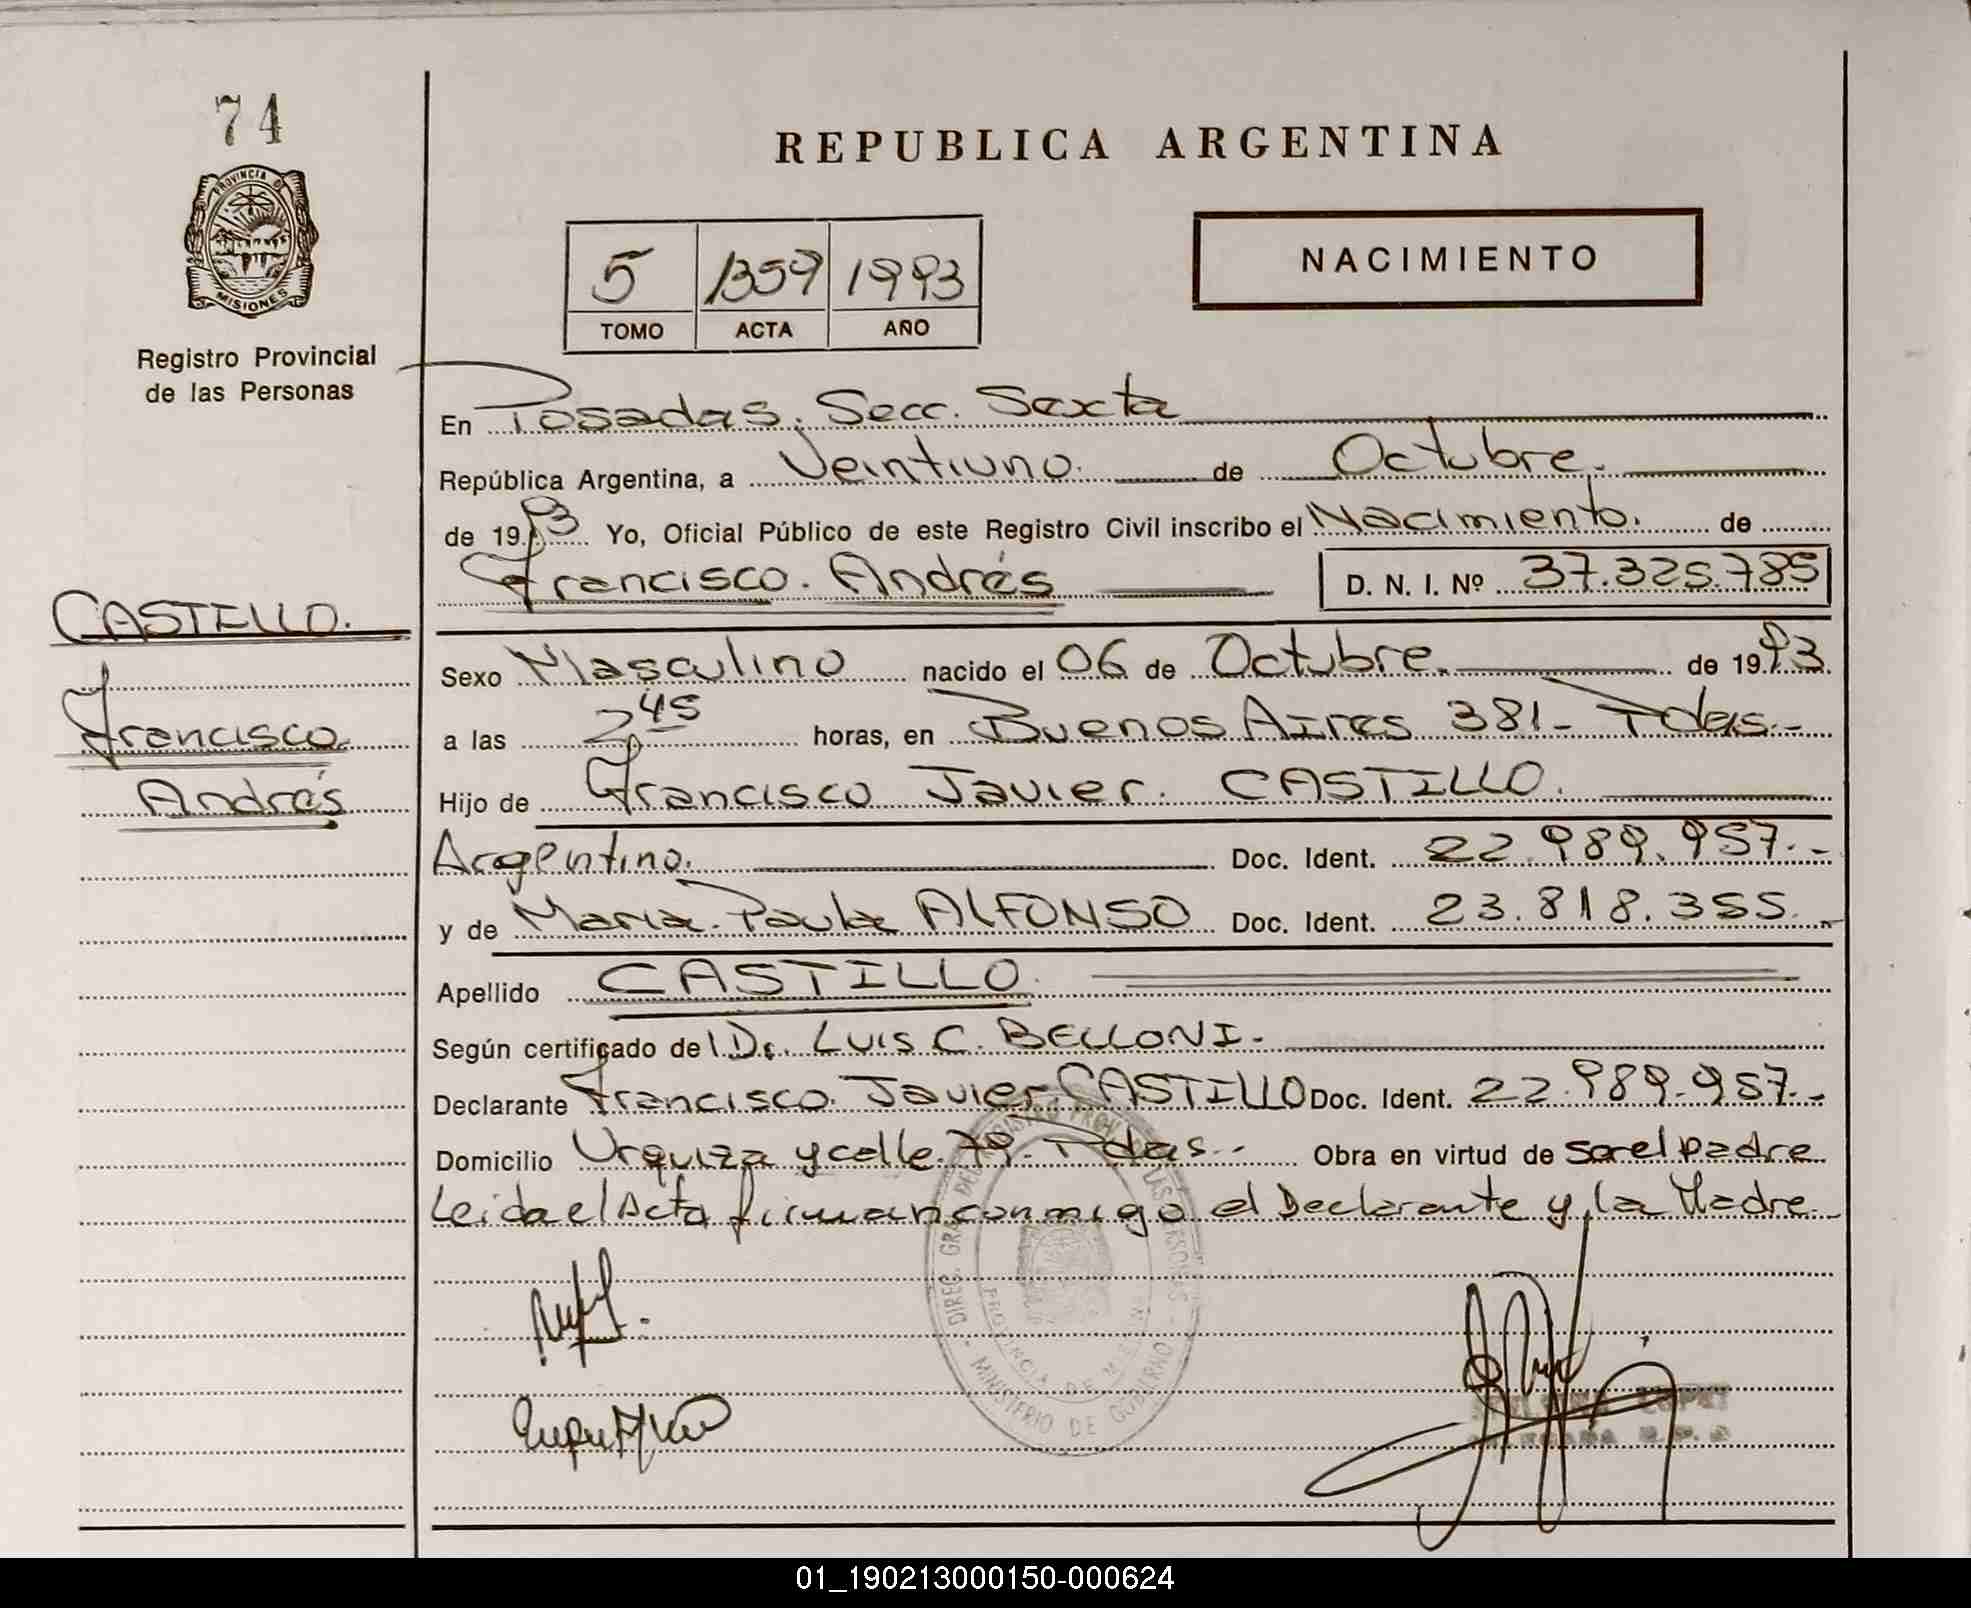 74
PROVINCIA DE
MISIONES
Registro Provincial
de las Personas
CASTILLO.
Francisco
Andrés
REPUBLICA ARGENTINA
5 1359 1993
TOMO ACTA AÑO
NACIMIENTO
En Posadas. Secc. Sexta
República Argentina, a Veintiuno. de Octubre.
de 1993 Yo, Oficial Público de este Registro Civil inscribo el Nacimiento. de
Francisco. Andrés D. N. I. Nº 37.325.785
Sexo Masculino nacido el 06 de Octubre. de 1993.
a las 2 45 horas, en Buenos Aires 381- Pdas.-
Hijo de Francisco Javier. CASTILLO.
Argentino. Doc. Ident. 22.989.957.-
y de Maria. Paula ALFONSO Doc. Ident. 23.818.355.-
Apellido CASTILLO.
Según certificado del Dr. LUIS C. BELLONI.-
Declarante Francisco. Javier. CASTILLO Doc. Ident. 22.989.957.-
Domicilio Urquiza y calle. 79. Pdas.- Obra en virtud de ser el padre
Leida el Acta firman conmigo el Declarante y la Madre.
DIREC. GRAL. DEL REGISTRO PROV. DE LAS PERSONAS
PROVINCIA DE MISIONES
- MINISTERIO DE GOBIERNO -
01_190213000150-000624